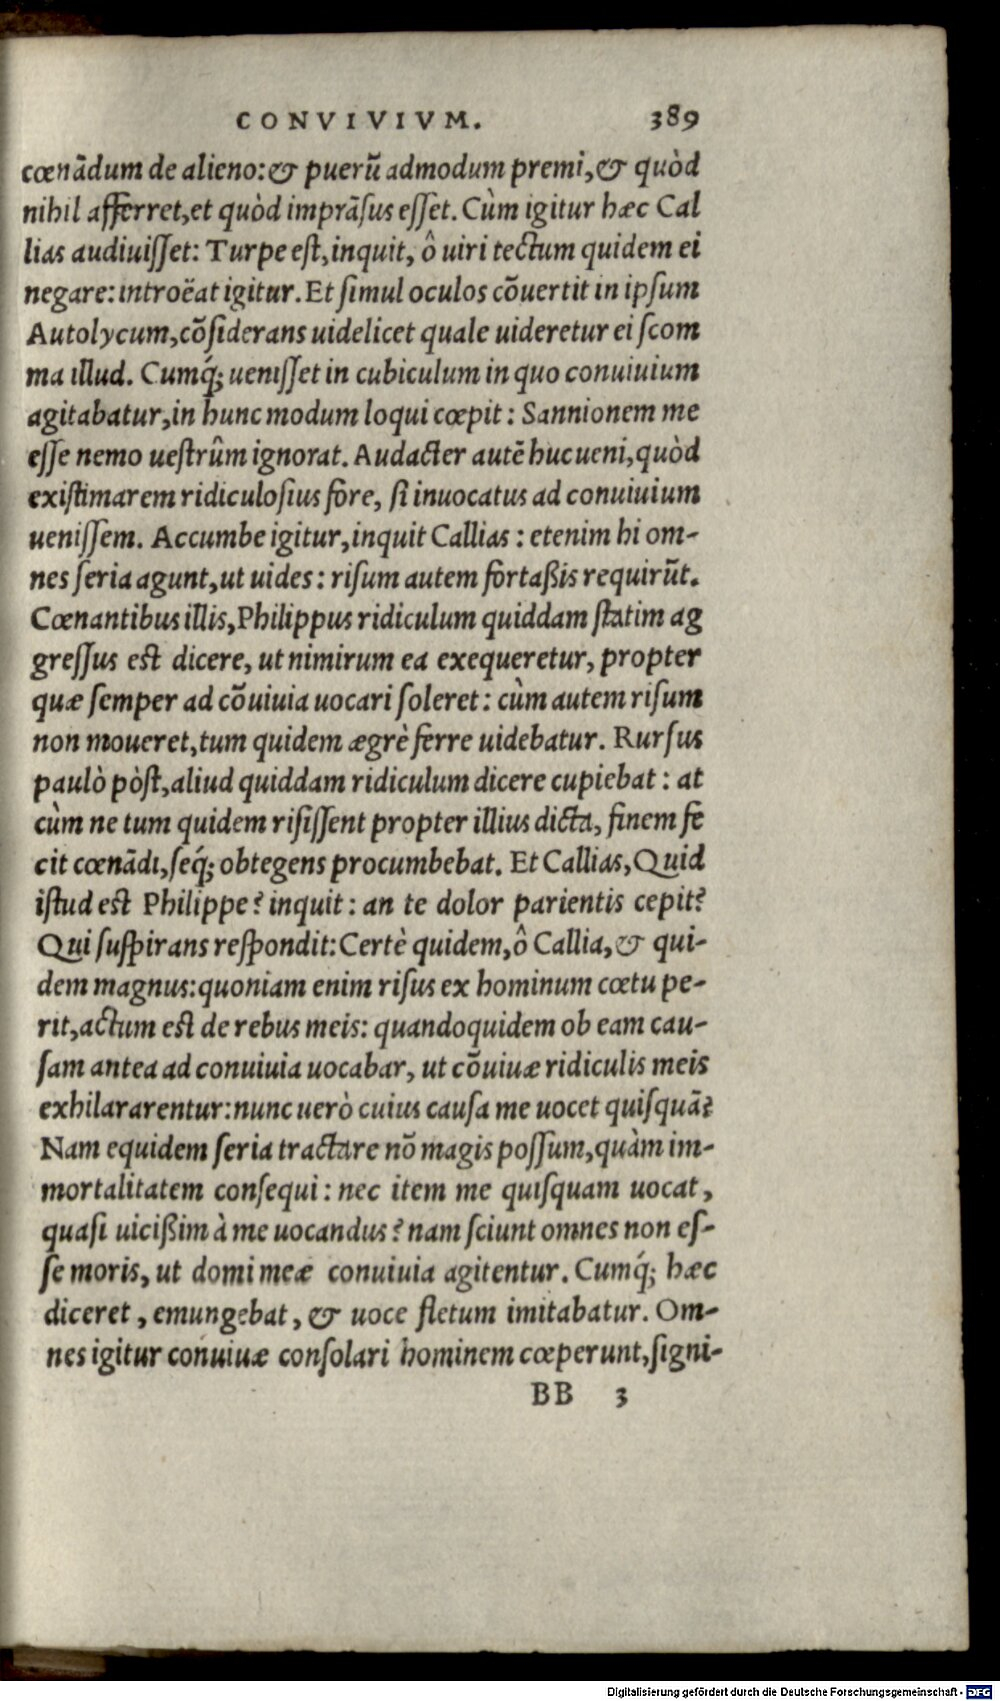 CONVIVIVM. 389
cœnãdum de alieno: & puerũ admodum premi, & quòd
nihil afferret, et quòd imprãsus esset. Cùm igitur hæc Cal
lias audiuisset: Turpe est, inquit, ô uiri tectum quidem ei
negare: introëat igitur. Et simul oculos cõuertit in ipsum
Autolycum, cõsiderans uidelicet quale uideretur ei scom
ma illud. Cumq́; uenisset in cubiculum in quo conuiuium
agitabatur, in hunc modum loqui cœpit: Sannionem me
esse nemo uestrûm ignorat. Audacter autẽ huc ueni, quòd
existimarem ridiculosius fore, si inuocatus ad conuiuium
uenissem. Accumbe igitur, inquit Callias: etenim hi om-
nes seria agunt, ut uides: risum autem fortaßis requirũt.
Cœnantibus illis, Philippus ridiculum quiddam statim ag
gressus est dicere, ut nimirum ea exequeretur, propter
quæ semper ad cõuiuia uocari soleret: cùm autem risum
non moueret, tum quidem ægrè ferre uidebatur. Rursus
paulò pòst, aliud quiddam ridiculum dicere cupiebat: at
cùm ne tum quidem risissent propter illius dicta, finem fe
cit cœnãdi, seq́; obtegens procumbebat. Et Callias, Quid
istud est Philippe? inquit: an te dolor parientis cepit?
Qui suspirans respondit: Certè quidem, ô Callia, & qui-
dem magnus: quoniam enim risus ex hominum cœtu pe-
rit, actum est de rebus meis: quandoquidem ob eam cau-
sam antea ad conuiuia uocabar, ut cõuiuæ ridiculis meis
exhilararentur: nunc uerò cuius causa me uocet quisquã?
Nam equidem seria tractare nõ magis possum, quàm im-
mortalitatem consequi: nec item me quisquam uocat,
quasi uicißim à me uocandus? nam sciunt omnes non es-
se moris, ut domi meæ conuiuia agitentur. Cumq́; hæc
diceret, emungebat, & uoce fletum imitabatur. Om-
nes igitur conuiuæ consolari hominem cœperunt, signi-
BB 3
Digitalisierung gefördert durch die Deutsche Forschungsgemeinschaft - DFG